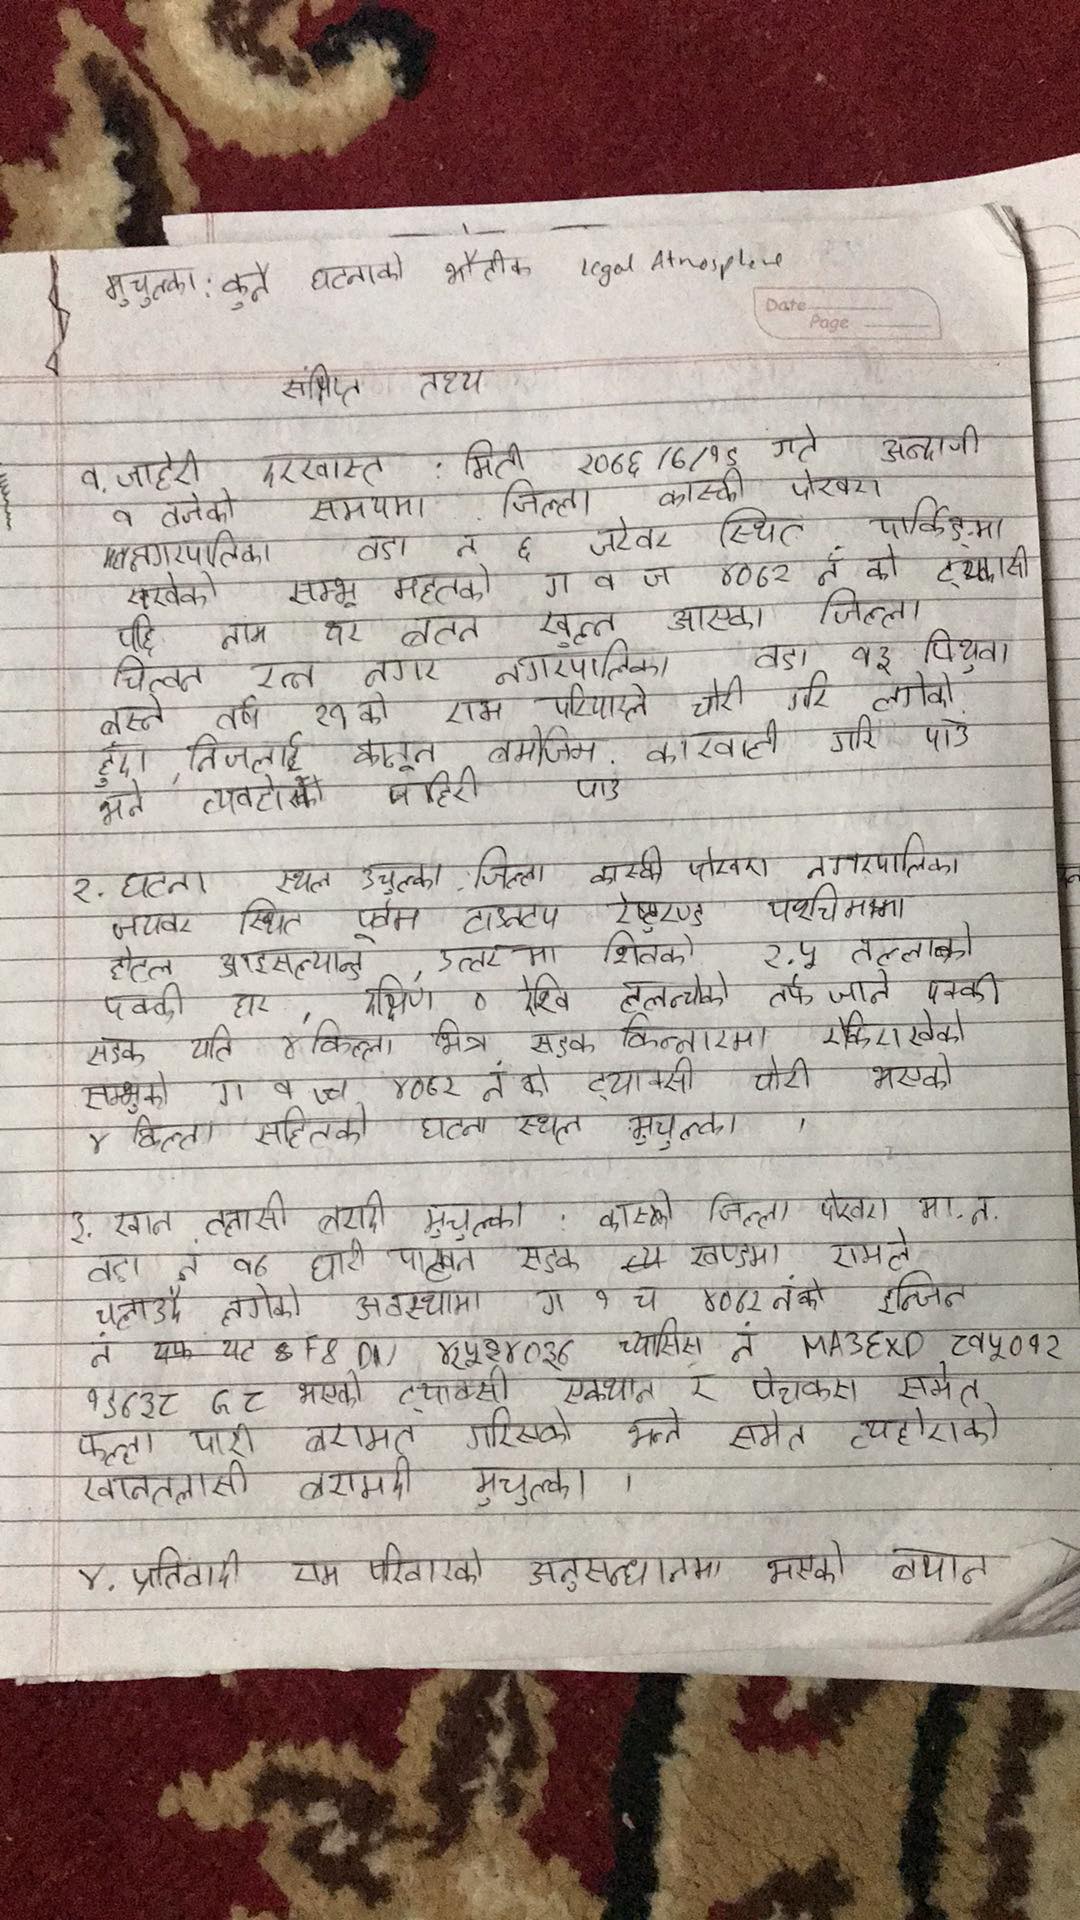 मुचुल्का : कुनै घटनाको भौतीक legal Atmosphere
Date
Page
संक्षिप्त तथ्य
१. जाहेरी दरखास्त : मिती २०६६/6/१९ गते अन्दाजी
१ बजेको समयमा जिल्ला कास्की पोखरा
नगरपालिका वडा न ६ जरेवर स्थित पार्किङमा
राखेको सम्भू महतको ग १ ज ४०६२ नं को ट्याक्सी
पछि नाम थर बतन खुल्न आएका जिल्ला
चितवन रत्न नगर नगरपालिका वडा १३ पिथुवा
बस्ने वर्ष २१ को राम परियारले चोरी गरि लगेको
हुंदा, निजलाई कानून बमोजिम कारवाही गरि पाउ
भने त्यवटोरको जाहिरी पाउ
२. घटना स्थल मुचुल्का : जिल्ला कास्की पोखरा नगरपालिका
जयवर स्थित पूर्वमा टाउनटप रेष्टुरण्ड पश्चिममा
होटल आइसल्यान्ड, उत्तरमा शिवको २.५ तल्लाको
पक्की घर, दक्षिण ० देखि हलन्चोको तर्फ जाने पक्की
सडक यति ४ किल्ला भित्र सडक किन्नारमा रोकिराखेको
सम्भुको ग १ ज ४०६२ नं को ट्याक्सी चोरी भएको
४ किल्ला सहितको घटना स्थल मुचुल्का ।
३. खान तलासी बरादी मुचुल्का : कास्की जिल्ला पोखरा मा.न.
वडा नं १८ घारी पाखन सडक खण्डमा रामले
चलाउदै लगेको अवस्थामा ग १ च ४०६२ नंको इन्जिन
नं F8 DN ४५५२४०३६ च्यासिस नं MA3EXD ८१५०१२
१९६३८ ६८ भएको ट्याक्सी एकथान र पेचकस समेत
फल्ला पारी बरामत गरिएको भन्ने समेत व्यहोराको
खानतलासी बरामदी मुचुल्का ।
४. प्रतिवादी राम परिवारको अनुसन्धानमा भएको बयान